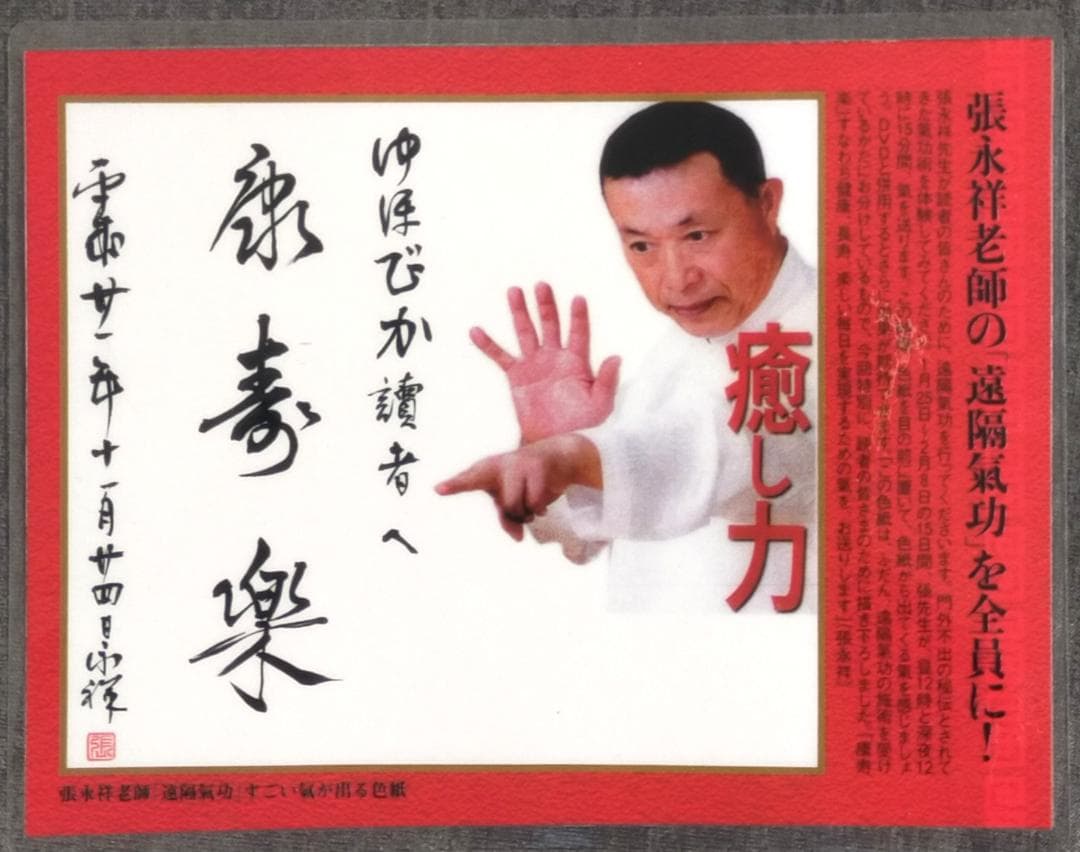 張永祥老師の「遠隔氣功」を全員に!
張永祥先生が読者の皆さんのために、遠隔氣功を行ってくださいます。門外不出の秘伝とされて
きた氣功術を体験してみてください。1月25日〜2月8日の15日間、張先生が、昼12時と深夜12
時に15分間、氣を送ります。この時間、色紙を目の前に置いて、色紙から出てくる氣を感じましょ
う。DVDと併用するとさらに効果が期待できます。「この色紙は、ふだん、遠隔氣功の施術を受け
ているかたにお分けしているもので、今回特別に、読者の皆さまのために描き下ろしました。『康寿
楽』すなわち健康、長寿、楽しい毎日を実現するための氣を、お送りします」(張永祥)
癒し力
ゆほびか讀者へ
康寿樂
平成廿一年十一月廿四日永祥
張
張永祥老師「遠隔氣功」すごい氣が出る色紙